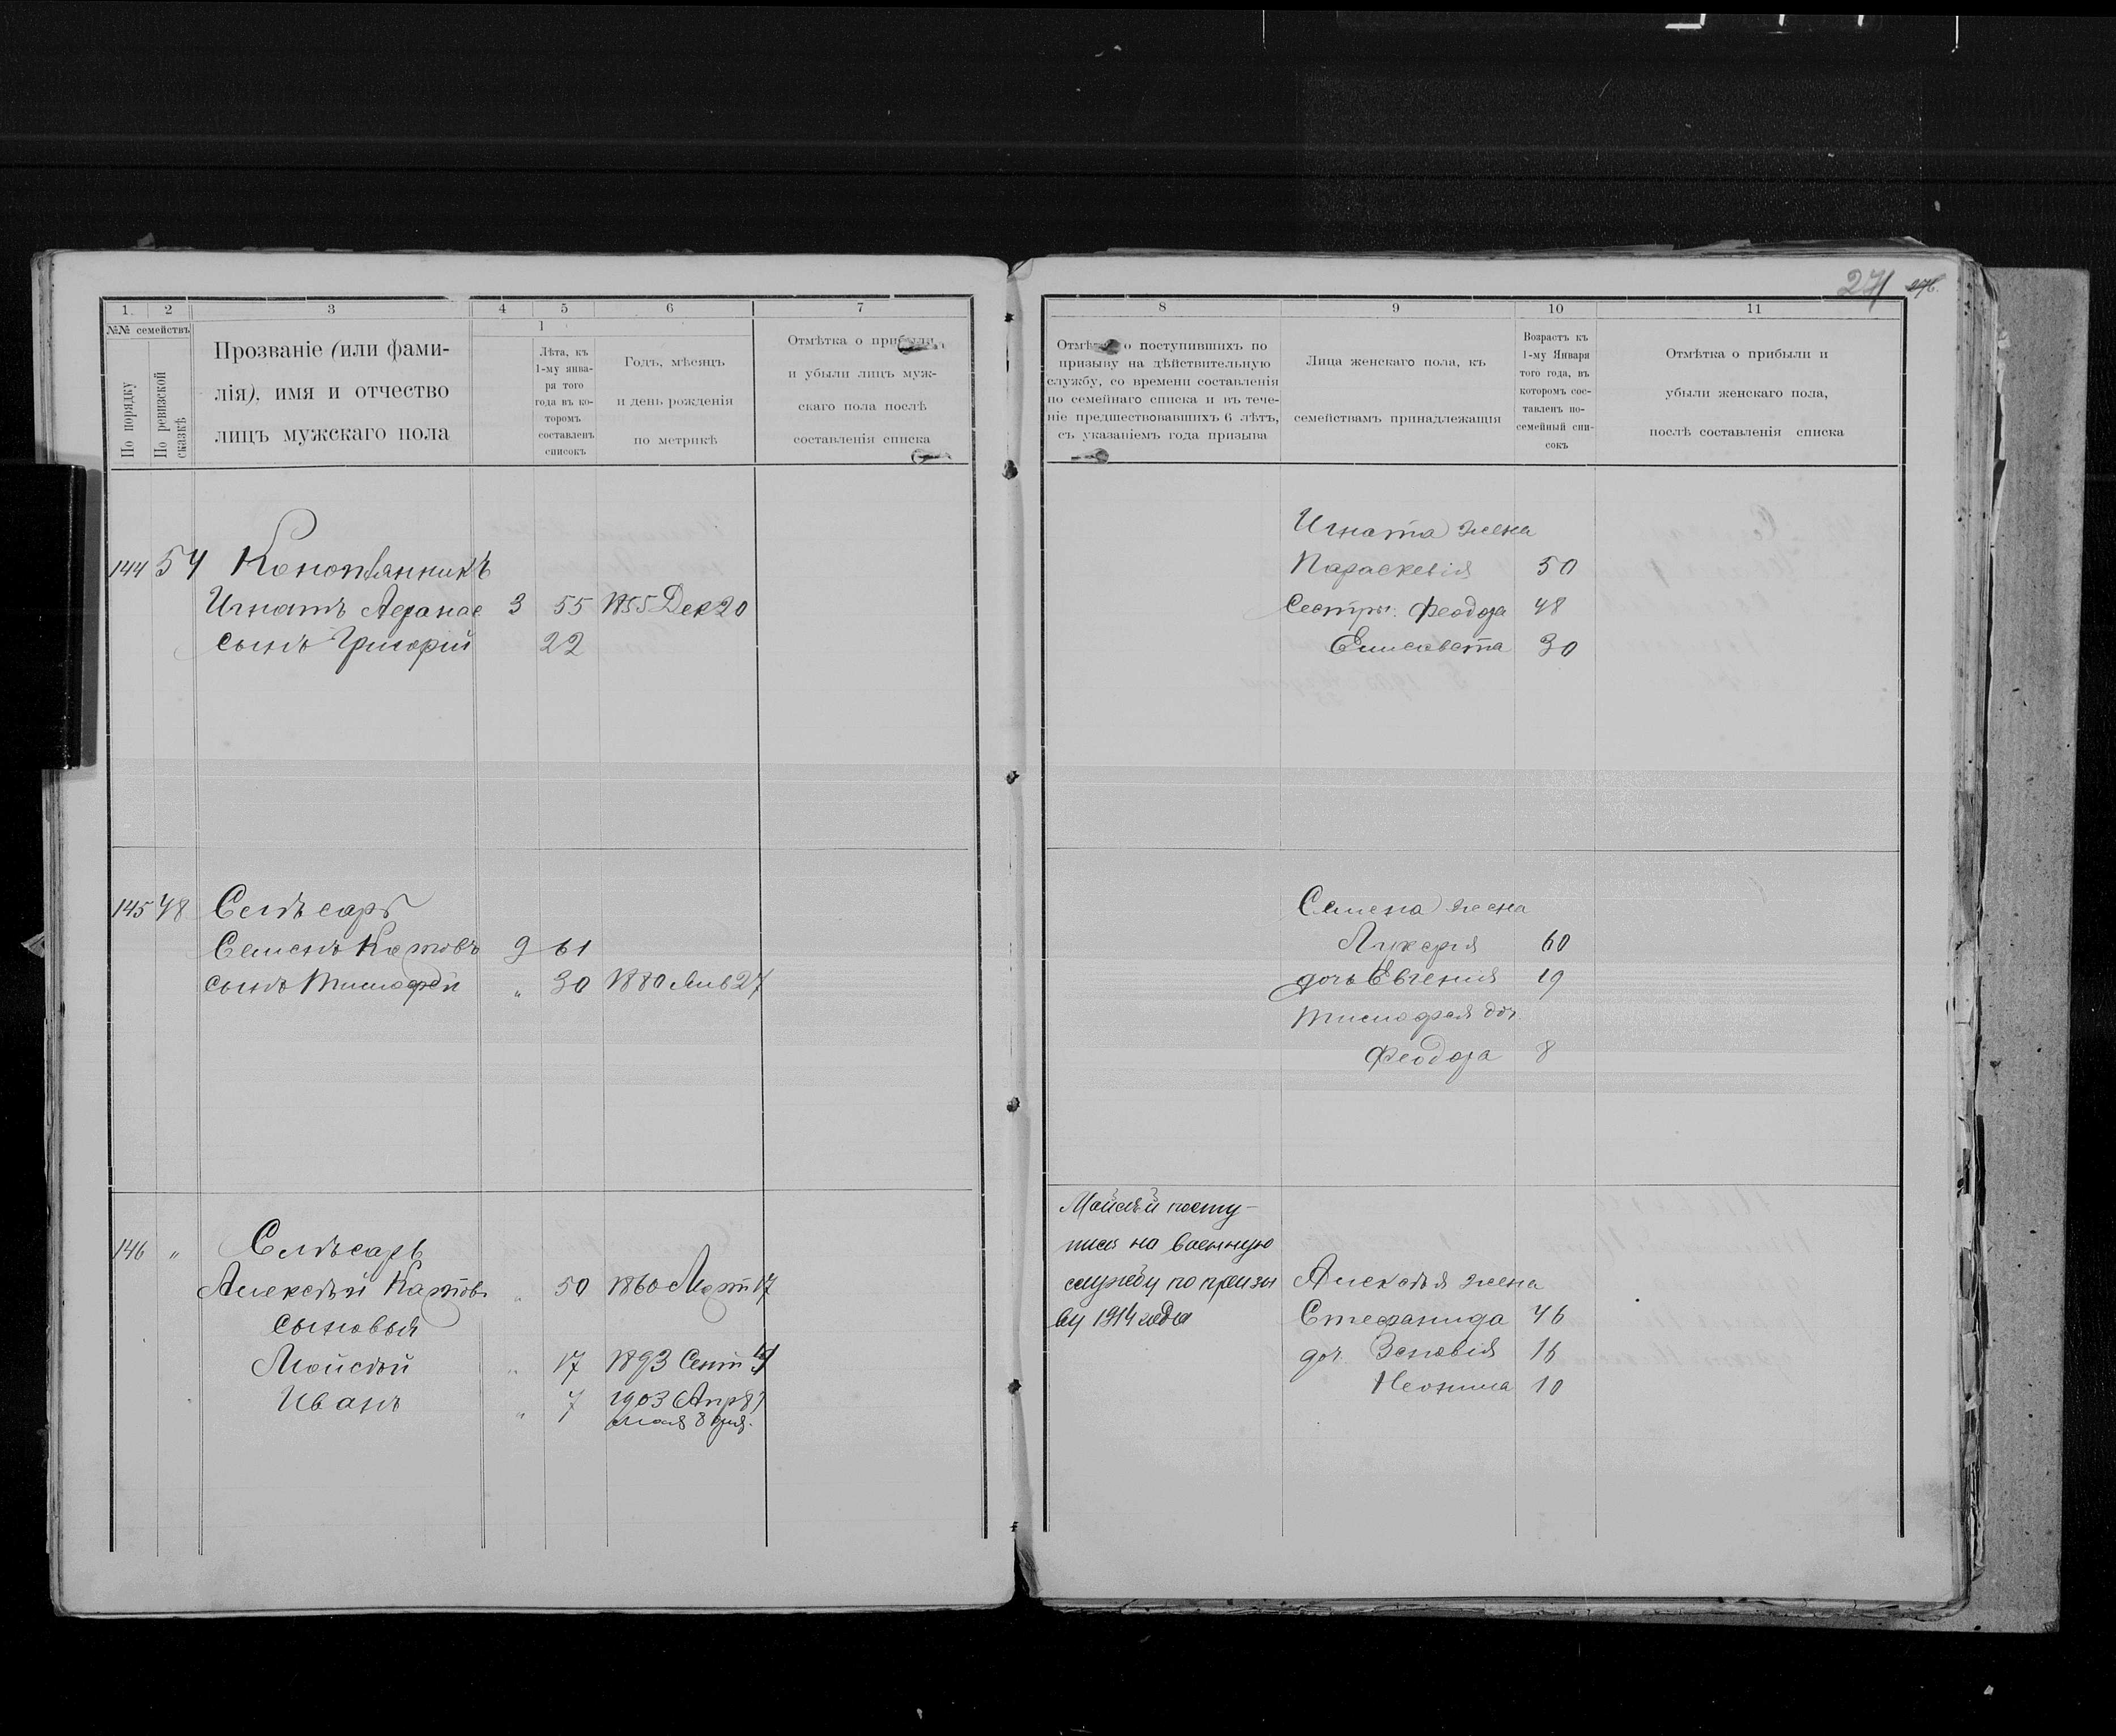 1. 2 3 4 5 6 7
№№ семействъ
По порядку
По ревизской сказкѣ
Прозваніе (или фами-
лія), имя и отчество
лицъ мужскаго пола
1
Лѣта, къ
1-му янва-
ря того
года въ ко-
торомъ
составленъ
списокъ
Годъ, мѣсяцъ
и день рожденія
по метрикѣ
Отмѣтка о прибыли
и убыли лицъ муж-
скаго пола послѣ
составленія списка
144 54 Коноплянникъ
Игнатъ Афанас 3 55 1855 Дек 20
сынъ Григорій 22
145 48 Слѣсарь
Семенъ Катовъ 9 61
сынъ Тимофей " 30 1880 Янв 27
146 " Слѣсарь
Алексѣй Катовъ " 50 1860 Март 17
сыновья
Мойсѣй " 17 1893 Сент
Иванъ " 7 1903 Апр
мая 8 дня.
271 276.
8 9 10 11
Отмѣтка о поступившихъ по
призыву на дѣйствительную
службу, со времени составленія
по семейнаго списка и въ тече-
ніе предшествовавшихъ 6 лѣтъ,
съ указаніемъ года призыва
Лица женскаго пола, къ
семействамъ принадлежащія
Возрастъ къ
1-му Января
того года, въ
которомъ сос-
тавленъ по-
семейный спи-
сокъ
Отмѣтка о прибыли и
убыли женскаго пола,
послѣ составленія списка
Игната жена
Параскевія 50
Сестры: Феодора 48
Елисавета 30
Семена жена
Лукерія 60
дочь Евгенія 19
Тимофея доч
Феодора 8
Мойсѣй посту-
пил на военную
службу по призы
ву 1914 года
Алексѣя жена
Стефанида 46
доч. Зеновія 16
Неонила 10